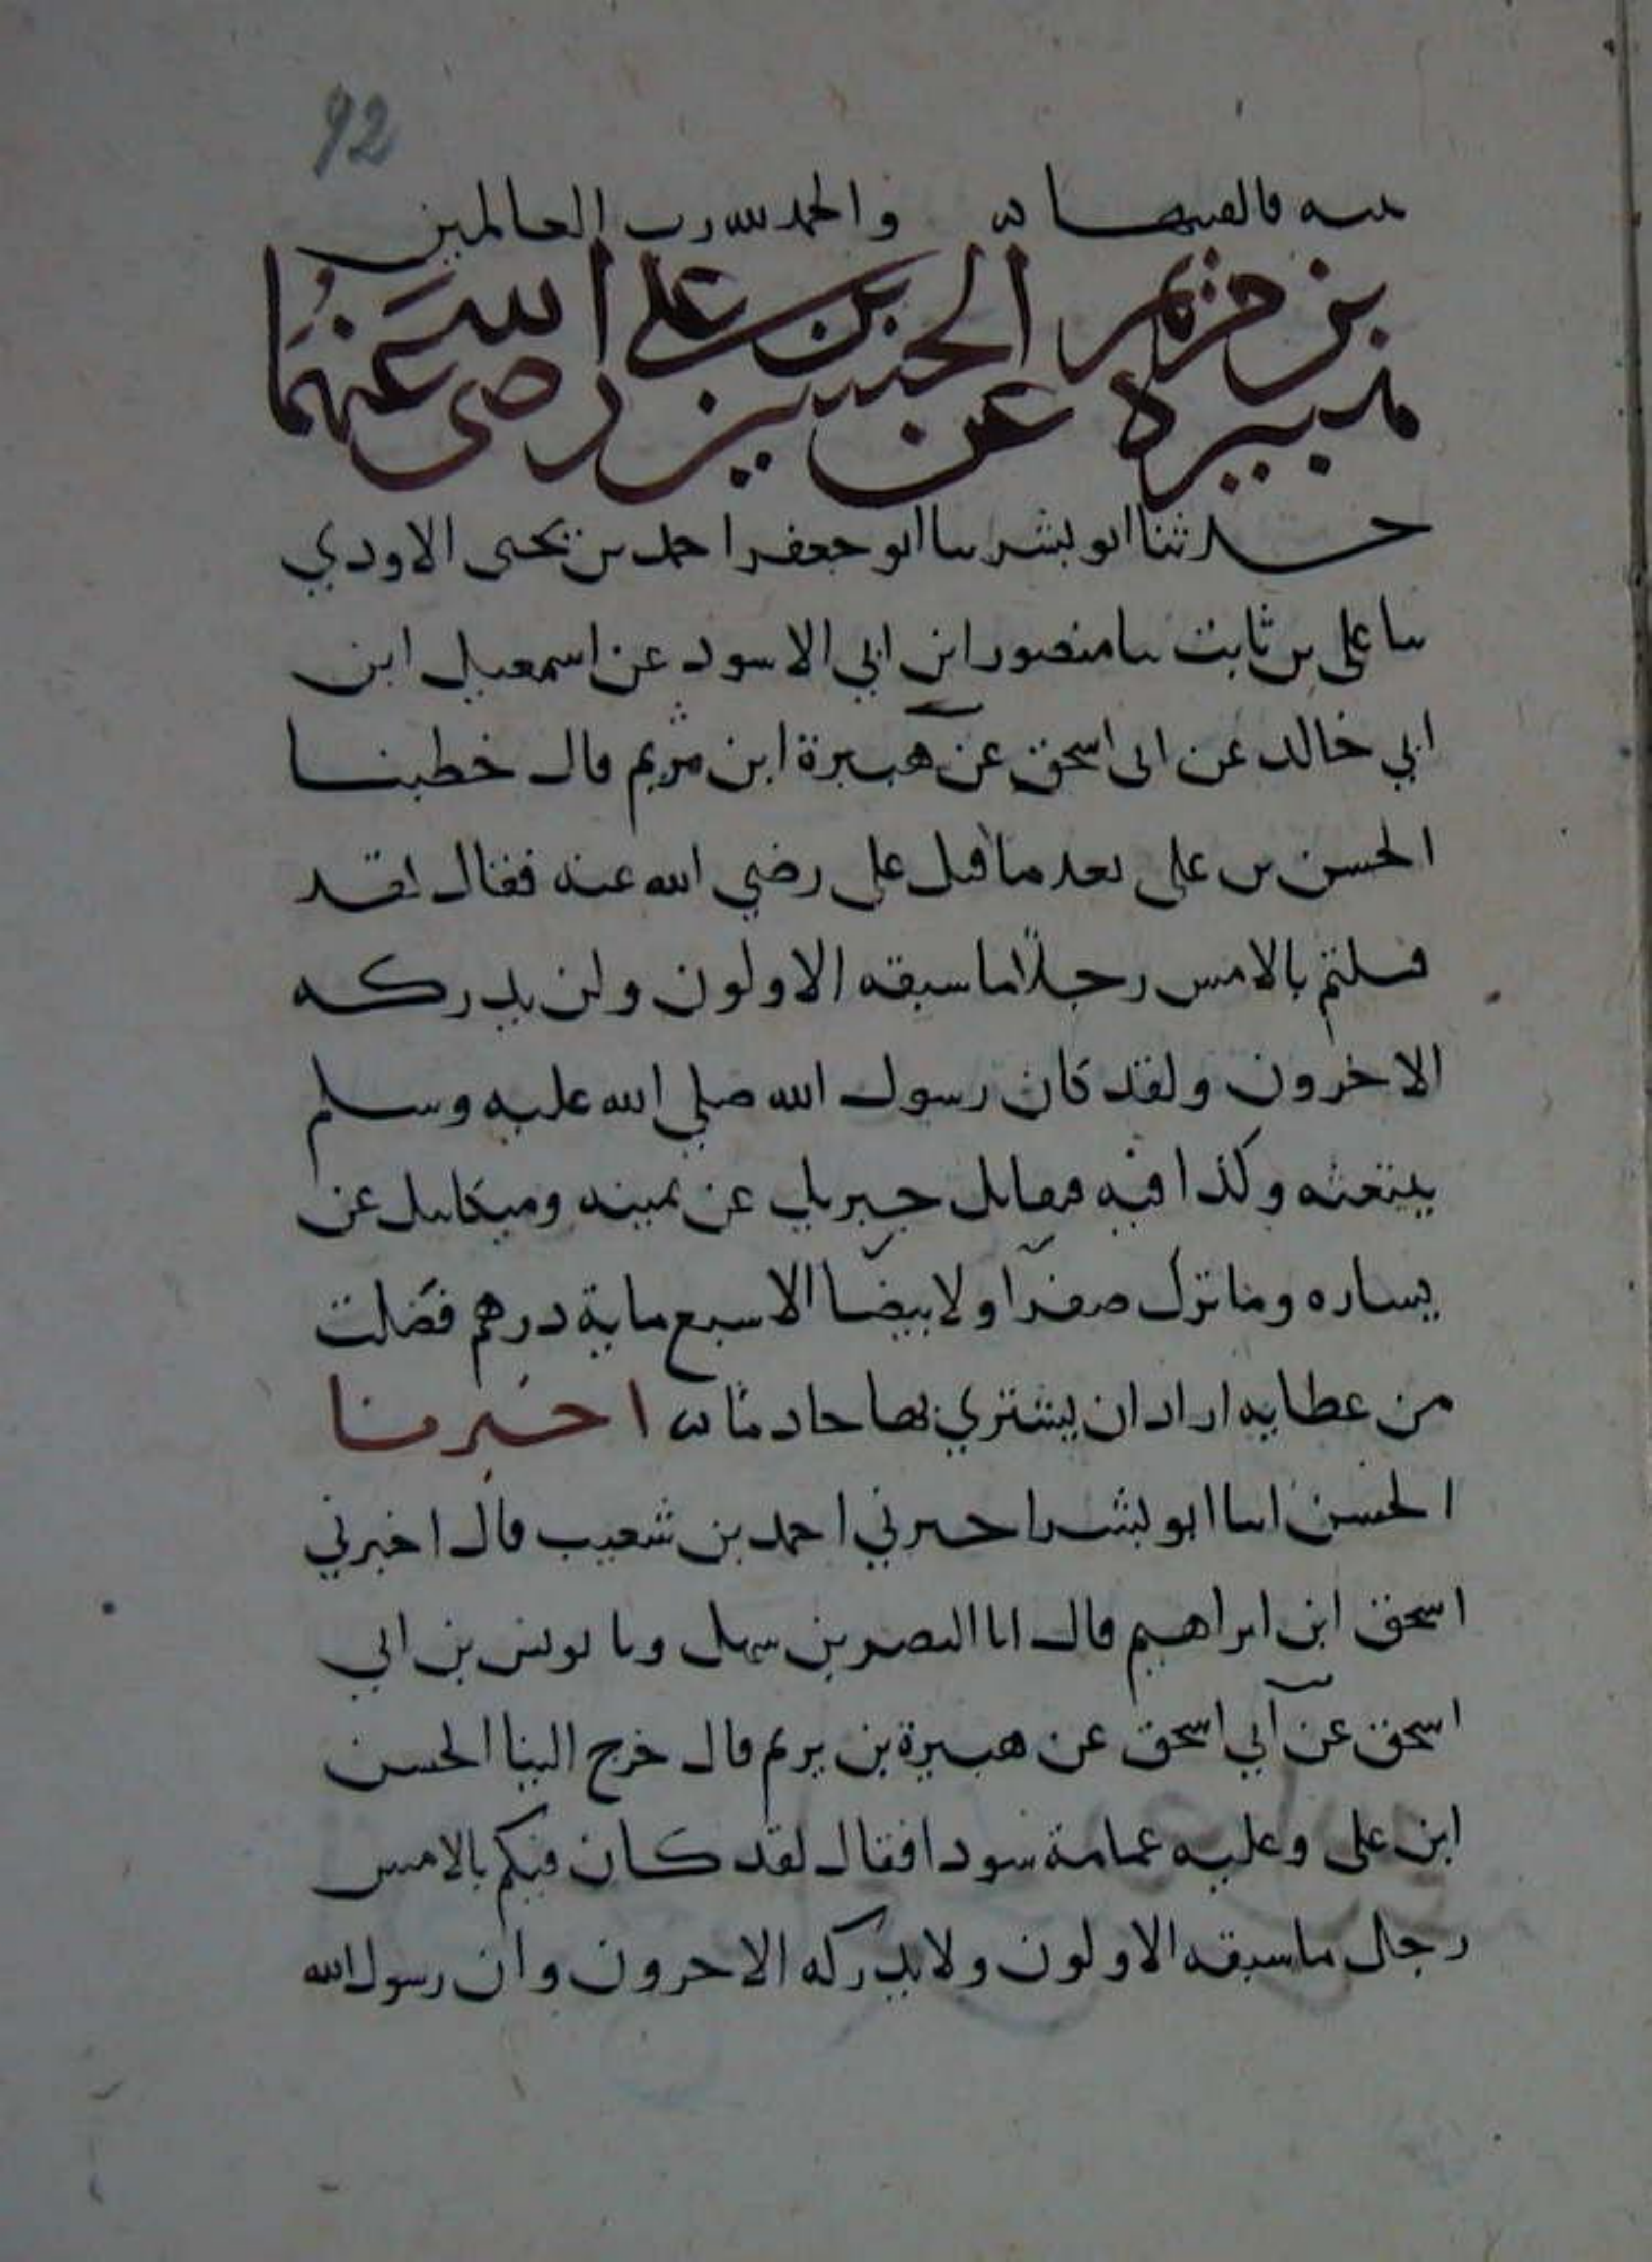 92
منه فالقيها ه والحمد لله رب العالمين
هبيرة بن مريم عن الحسين بن علي رضى الله عنهما
حدثنا ابو بشر سا ابو جعفر احمد بن يحيى الاودي
سا على بن ثابت سا منصور ابن ابي الاسود عن اسمعيل ابن
ابي خالد عن ابى اسحق عن هبيرة ابن مريم قال خطبنا
الحسن بن على بعد ما قتل على رضي الله عنه فقال لقد
قتلتم بالامس رجلا ما سبقه الاولون ولن يدركه
الاخرون ولقد كان رسول الله صلي الله عليه وسلم
يبتعثه وكذا فيه فيقاتل جبريل عن يمينه وميكايل عن
يساره وما ترك صفرا ولا بيضا الا سبع ماية درهم فضلت
من عطايه اراد ان يشتري بها خادما ه اخبرنا
الحسن انا ابو بشر اخبرني احمد بن شعيب قال اخبرني
اسحق ابن ابراهيم قال انا النصر بن سهل ونا يونس بن ابي
اسحق عن ابي اسحق عن هبيرة بن يريم قال خرج الينا الحسن
ابن على وعليه عمامة سودا فقال لقد كان فيكم بالامس
رجال ما سبقه الاولون ولا يدركه الاخرون وان رسول الله